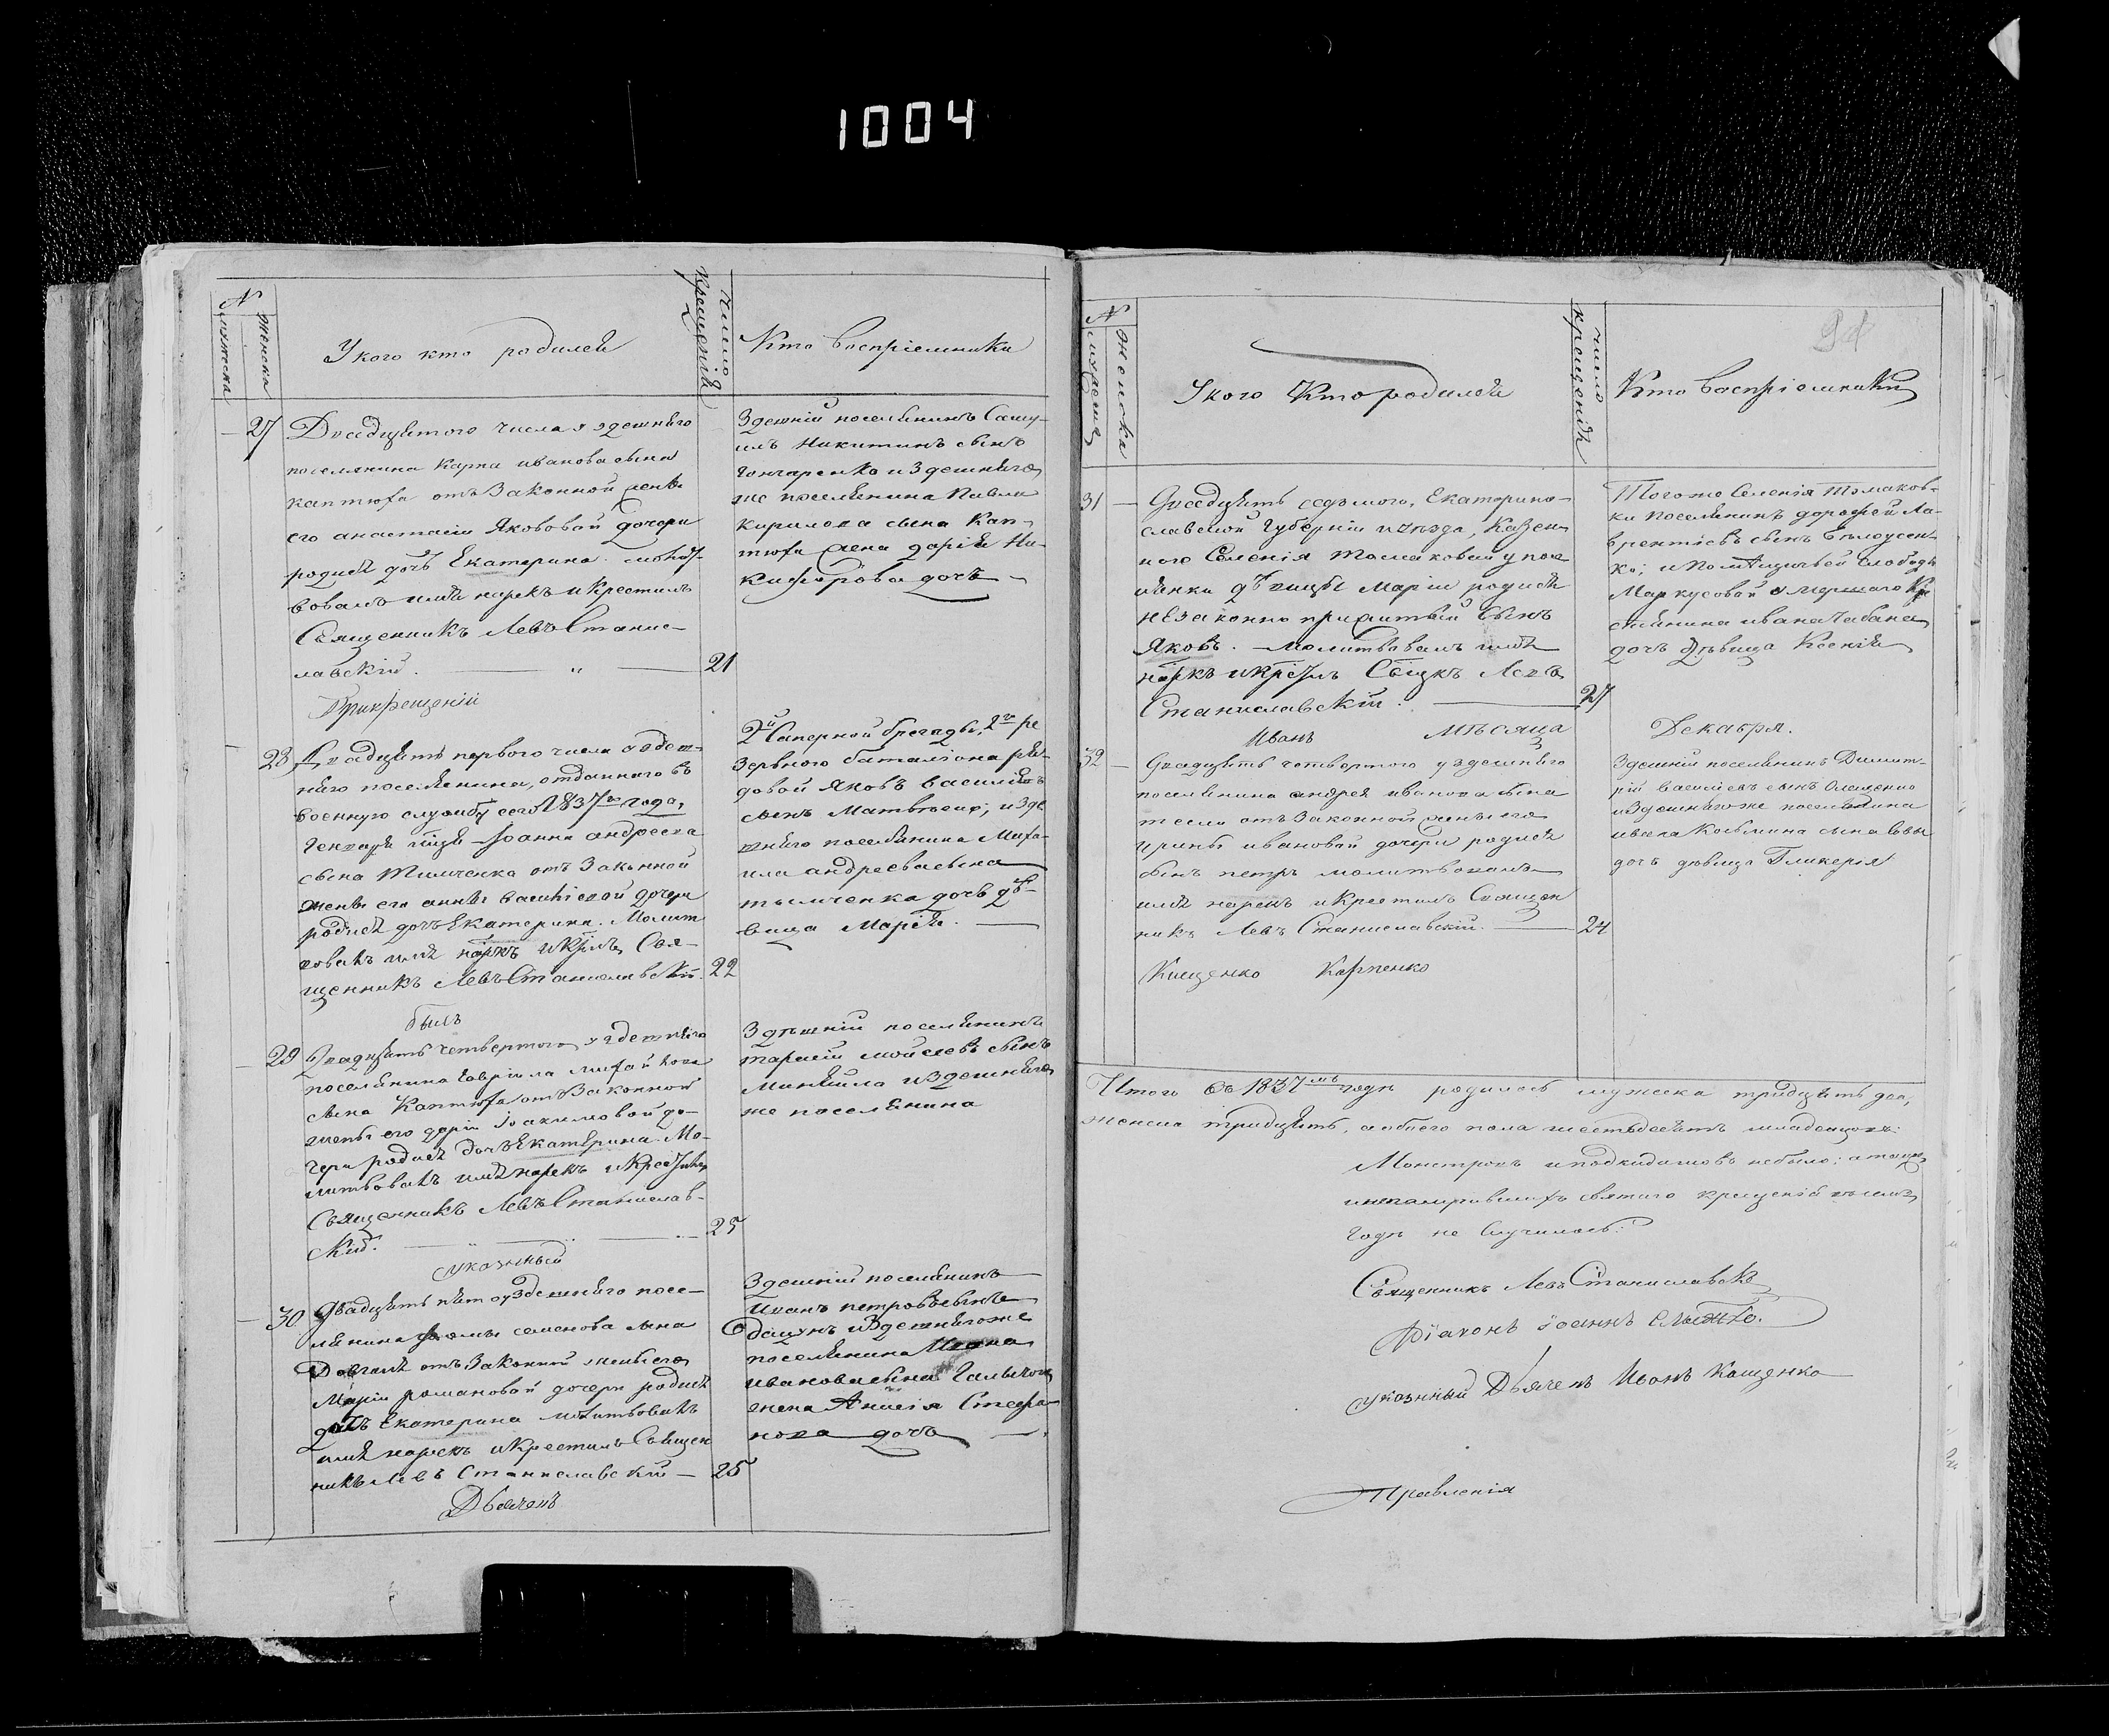 1004
N
мужеска
женска
У кого кто родился
число
крещенія
Кто воспріемники
27
Двадцятого числа у здешняго
поселянина Карпа иванова сына
каптюха отъ законной жены
его анастасіи Якововой дочери
родися дочь Екатерина.
вовалъ имя нарекъ и крестилъ
Священникъ Левъ Станис-
лавскій.
21
Здешній поселянинъ Саму-
илъ Никитинъ сынъ
гончаренко и здешняго
же поселянина Павла
кирилова сына Кап-
тюха жена дарія Ни-
кифорова дочь
Прикрещеніи
28
Двадцять первого числа у здеш-
няго поселянина, отданнаго въ
военную службу сего 1837го года,
Іоанна андреева
сына Тимченка отъ Законной
жены его анны василіевой дочери
родися дочь Екатерина. Молит
вовалъ имя нарекъ и крстилъ Свя-
щенникъ Левъ Станиславскій.
22
2й Саперной брегады, 2го ре
зервного баталіона ря-
довой Яковъ василіевъ
сынъ Матвѣенко, и зде
шняго поселянина Миха-
ила андреева сына
тымченка дочь дѣ-
вица Марія.
былъ
29
Двадцять четвертого у здешняго
поселянина Гавріила михайлова
сына Каптюха отъ Законной
жены его даріи Іоакимовой до-
чери родися дочь Екатерина. Мо-
литвовалъ имя нарекъ и крестилъ
Священникъ Левъ Станислав-
скій.
25
Здѣшній поселянинъ
тарасій мойсеевъ сынъ
Миняйло и здешняго
же поселянина
указный
30
Двадцять пятого у здешняго посе-
лянина фомы семенова сына
Довгаля отъ законной жены его
Маріи романовой дочери родися
дочь Екатерина молитвовалъ
имя нарекъ и крестилъ Священ
никъ Левъ Станиславскій
25
Здешній поселянинъ
Иванъ петровъ сынъ
и здешняго же
поселянина Ивана
иванова сына
жена Анисія Стефа-
нова дочь
Дьячокъ
N
мужеска
женска
У кого Кто родился
число
крещенія
Кто воспріемники
94
31
Двадцять седьмого, Екатерино-
славской Губерніи и уѣзда, Казен-
ного Селенія Томаковки у посе
лянки дѣвицы Маріи родися
незаконно прижитый сынъ
Яковъ. Молитвовалъ имя
нарекъ и крстилъ Свщнкъ Левъ
Станиславскій.
27
Того же Селенія Томаков-
ки поселянинъ дорофей Ла-
врентіевъ сынъ Бѣлоусен-
ко; и помѣщичьей слободы
Маркусовой умершаго Кре
стянина ивана Чабана
дочь дѣвица Ксенія
Иванъ
мѣсяца
Декабря.
32
Двадцять четвертого у здешняго
поселянина андрея иванова сына
тесли отъ законной жены его
ирины ивановой дочери родися
сынъ петръ молитвовалъ
имя нарекъ и крестилъ Священ
никъ Левъ Станиславскій.
24
Здешній поселянинъ Димит-
рій василіевъ сынъ Олещенко
и здешняго же поселянина
Козьмина сына Совы
дочь дѣвица Гликерія
Кищенко Карпенко
Итого въ 1837мъ годѣ родилось мужеска тридцять два,
женска тридцять, а обоего пола шестьдесятъ младенцовъ:
Монстровъ и подкидишовъ небыло; а также
и непомировшихъ святаго крещенія въ семъ
годѣ не случилось:
Священникъ Левъ Станиславскій
Діаконъ Іоаннъ
указный Дьячекъ Иванъ Кащенко
Правленія